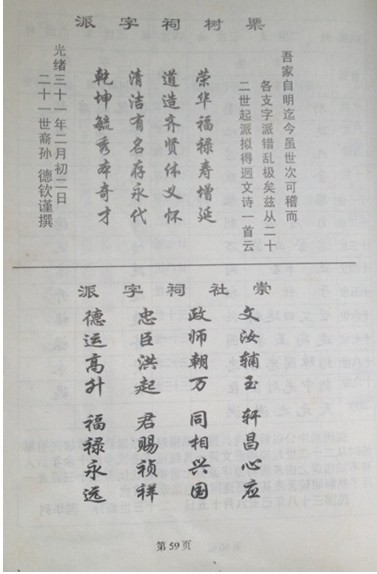 栗树祠字派
吾家自明迄今虽世次可稽而
各支字派错乱极矣兹从二十
二世起派拟得迥文诗一首云
荣华福禄寿增延
道造齐贤体义怀
清洁有名存永代
乾坤毓秀本奇才
光绪三十一年二月初二日
二十一世裔孙 德钦谨撰
崇社祠字派
文汝辅玉 轩昌心应
政师朝万 同相兴国
忠臣洪起 君赐祯祥
德运高升 福禄永远
第59页